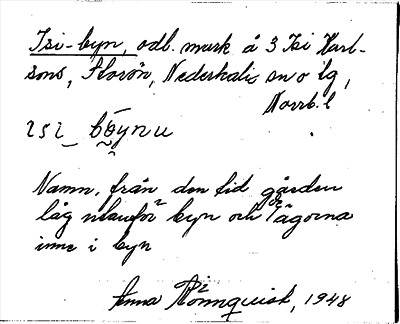 Isi-byn, odl. mark å 3 Isi Karl-
sons, Storön, Nederkalix sn o lg,
Norrb. l
ısı_ bo̬ynu
Namn, från den tid gården
låg utanför byn och ägorna
inne i byn
Anna Rönnquist, 1948